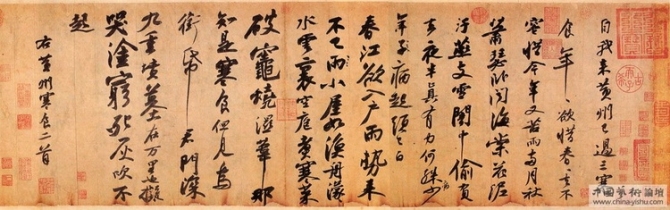 自我來黃州已過三寒
食年〻欲惜春〻去不
容惜今年又苦雨兩月秋
蕭瑟臥聞海棠花泥
汙燕支雪闇中偷負
去夜半真有力何殊少
年子病起頭已白
春江欲入戶雨勢來
不已雨小屋如漁舟濛〻
水雲裏空庖煮寒菜
破竈燒濕葦那
知是寒食但見烏
銜帋君門深
九重墳墓在万里也擬
哭塗窮死灰吹不
起
右黃州寒食二首
中國藝術論壇
www.chinayishu.com